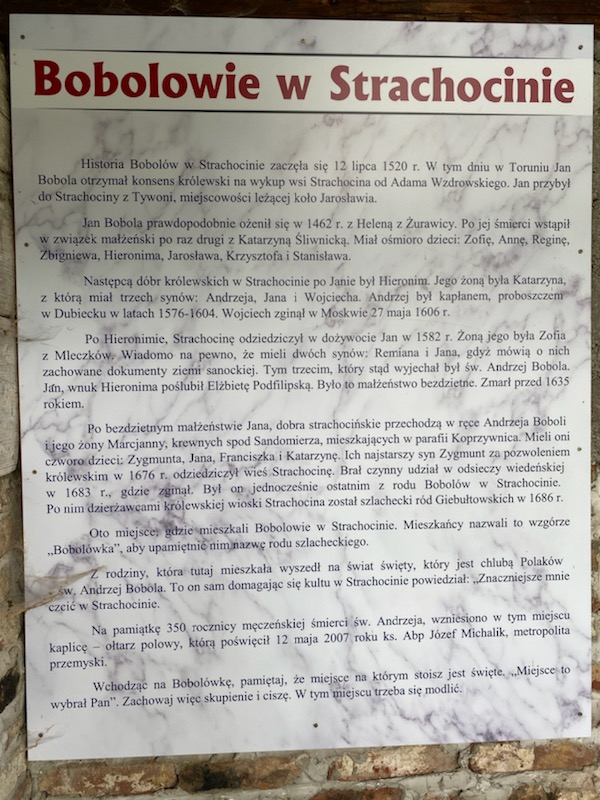 Bobolowie w Strachocinie
Historia Bobolów w Strachocinie zaczęła się 12 lipca 1520 r. W tym dniu w Toruniu Jan
Bobola otrzymał konsens królewski na wykup wsi Strachocina od Adama Wzdrowskiego. Jan przybył
do Strachociny z Tywoni, miejscowości leżącej koło Jarosławia.
Jan Bobola prawdopodobnie ożenił się w 1462 r. z Heleną z Żurawicy. Po jej śmierci wstąpił
w związek małżeński po raz drugi z Katarzyną Śliwnicką. Miał ośmioro dzieci: Zofię, Annę, Reginę,
Zbigniewa, Hieronima, Jarosława, Krzysztofa i Stanisława.
Następcą dóbr królewskich w Strachocinie po Janie był Hieronim. Jego żoną była Katarzyna,
z którą miał trzech synów: Andrzeja, Jana i Wojciecha. Andrzej był kapłanem, proboszczem
w Dubiecku w latach 1576-1604. Wojciech zginął w Moskwie 27 maja 1606 r.
Po Hieronimie, Strachocinę odziedziczył w dożywocie Jan w 1582 r. Żoną jego była Zofia
z Mleczków. Wiadomo na pewno, że mieli dwóch synów: Remiana i Jana, gdyż mówią o nich
zachowane dokumenty ziemi sanockiej. Tym trzecim, który stąd wyjechał był św. Andrzej Bobola.
Jan, wnuk Hieronima poślubił Elżbietę Podfilipską. Było to małżeństwo bezdzietne. Zmarł przed 1635
rokiem.
Po bezdzietnym małżeństwie Jana, dobra strachocińskie przechodzą w ręce Andrzeja Boboli
i jego żony Marcjanny, krewnych spod Sandomierza, mieszkających w parafii Koprzywnica. Mieli oni
czworo dzieci: Zygmunta, Jana, Franciszka i Katarzynę. Ich najstarszy syn Zygmunt za pozwoleniem
królewskim w 1676 r. odziedziczył wieś Strachocinę. Brał czynny udział w odsieczy wiedeńskiej
w 1683 r., gdzie zginął. Był on jednocześnie ostatnim z rodu Bobolów w Strachocinie.
Po nim dzierżawcami królewskiej wioski Strachocina został szlachecki ród Giebułtowskich w 1686 r.
Oto miejsce, gdzie mieszkali Bobolowie w Strachocinie. Mieszkańcy nazwali to wzgórze
„Bobolówka”, aby upamiętnić nim nazwę rodu szlacheckiego.
Z rodziny, która tutaj mieszkała wyszedł na świat święty, który jest chlubą Polaków
św. Andrzej Bobola. To on sam domagając się kultu w Strachocinie powiedział: „Znaczniejsze mnie
czcić w Strachocinie.
Na pamiątkę 350 rocznicy męczeńskiej śmierci św. Andrzeja, wzniesiono w tym miejscu
kaplicę – ołtarz polowy, którą poświęcił 12 maja 2007 roku ks. Abp Józef Michalik, metropolita
przemyski.
Wchodząc na Bobolówkę, pamiętaj, że miejsce na którym stoisz jest święte. „Miejsce to
wybrał Pan”. Zachowaj więc skupienie i ciszę. W tym miejscu trzeba się modlić.